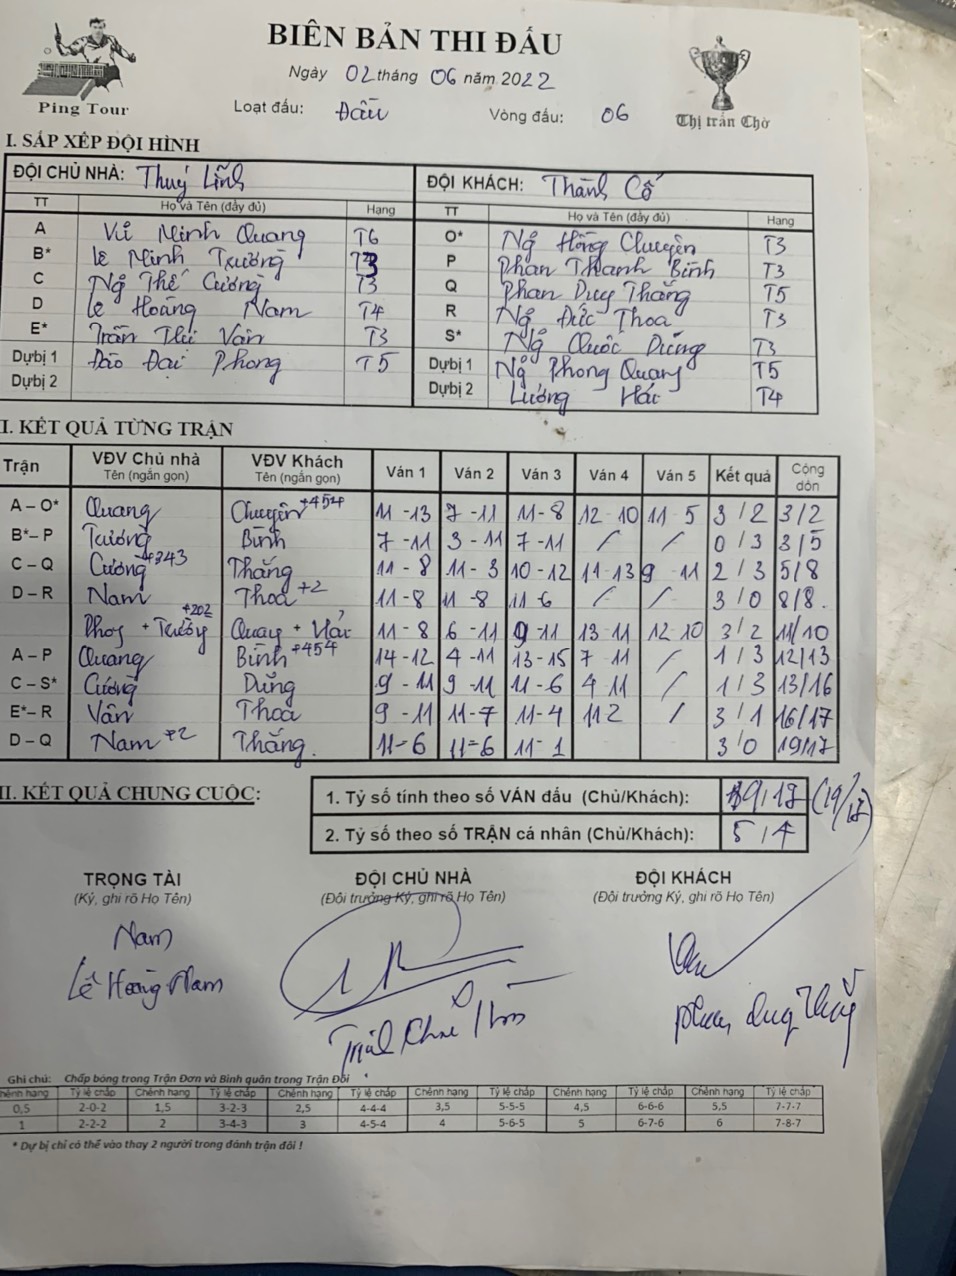 BIÊN BẢN THI ĐẤU
Ping Tour
Ngày 02 tháng 06 năm 2022
Loạt đấu: Đầu Vòng đấu: 06
Thị trấn Chờ
I. SẮP XẾP ĐỘI HÌNH
ĐỘI CHỦ NHÀ: Thuỳ Lĩnh ĐỘI KHÁCH: Thành Cố
TT Họ và Tên (đầy đủ) Hạng TT Họ và Tên (đầy đủ) Hạng
A Vũ Minh Quang T6 O* Ng Hồng Chuyên T3
B* Lê Minh Trường T3 P Phan Thanh Bình T3
C Ng Thế Cường T3 Q Phan Duy Thắng T5
D Lê Hoàng Nam T4 R Ng Đức Thoa T3
E* Trần Thị Vân T3 S* Ng Quốc Dũng T3
Dựbị 1 Đào Đại Phong T5 Dựbị 1 Ng Phong Quang T5
Dựbị 2 Dựbị 2 Lương Hải T4
I. KẾT QUẢ TỪNG TRẬN
Trận VĐV Chủ nhà Tên (ngắn gọn) VĐV Khách Tên (ngắn gọn) Ván 1 Ván 2 Ván 3 Ván 4 Ván 5 Kết quả Cộng dồn
A – O* Quang Chuyên +454 11-13 7-11 11-8 12-10 11-5 3/2 3/2
B*– P Trường Bình 7-11 3-11 7-11 / / 0/3 3/5
C – Q Cường +343 Thắng 11-8 11-3 10-12 11-13 9-11 2/3 5/8
D – R Nam Thoa +2 11-8 11-8 11-6 / / 3/0 8/8.
Phog + Trường +202 Quang + Hải 11-8 6-11 9-11 13-11 12-10 3/2 11/10
A – P Quang Bình +454 14-12 4-11 13-15 7-11 / 1/3 12/13
C – S* Cường Dũng 9-11 9-11 11-6 4-11 / 1/3 13/16
E*– R Vân Thoa 9-11 11-7 11-4 11 2 / 3/1 16/17
D – Q Nam +2 Thắng. 11-6 11-6 11-1 3/0 19/17
II. KẾT QUẢ CHUNG CUỘC:
1. Tỷ số tính theo số VÁN đấu (Chủ/Khách): 19/17 (19/17)
2. Tỷ số theo số TRẬN cá nhân (Chủ/Khách): 5/4
TRỌNG TÀI ĐỘI CHỦ NHÀ ĐỘI KHÁCH
(Ký, ghi rõ Họ Tên) (Đội trưởng Ký, ghi rõ Họ Tên) (Đội trưởng Ký, ghi rõ Họ Tên)
Nam
Lê Hoàng Nam
Phan Duy Thắng
Ghi chú: Chấp bóng trong Trận Đơn và Bình quân trong Trận Đôi
hênh hạng Tỷ lệ chấp Chênh hạng Tỷ lệ chấp Chênh hạng Tỷ lệ chấp Chênh hạng Tỷ lệ chấp Chênh hạng Tỷ lệ chấp Chênh hạng Tỷ lệ chấp
0,5 2-0-2 1,5 3-2-3 2,5 4-4-4 3,5 5-5-5 4,5 6-6-6 5,5 7-7-7
1 2-2-2 2 3-4-3 3 4-5-4 4 5-6-5 5 6-7-6 6 7-8-7
* Dự bị chỉ có thể vào thay 2 người trong đánh trận đôi !